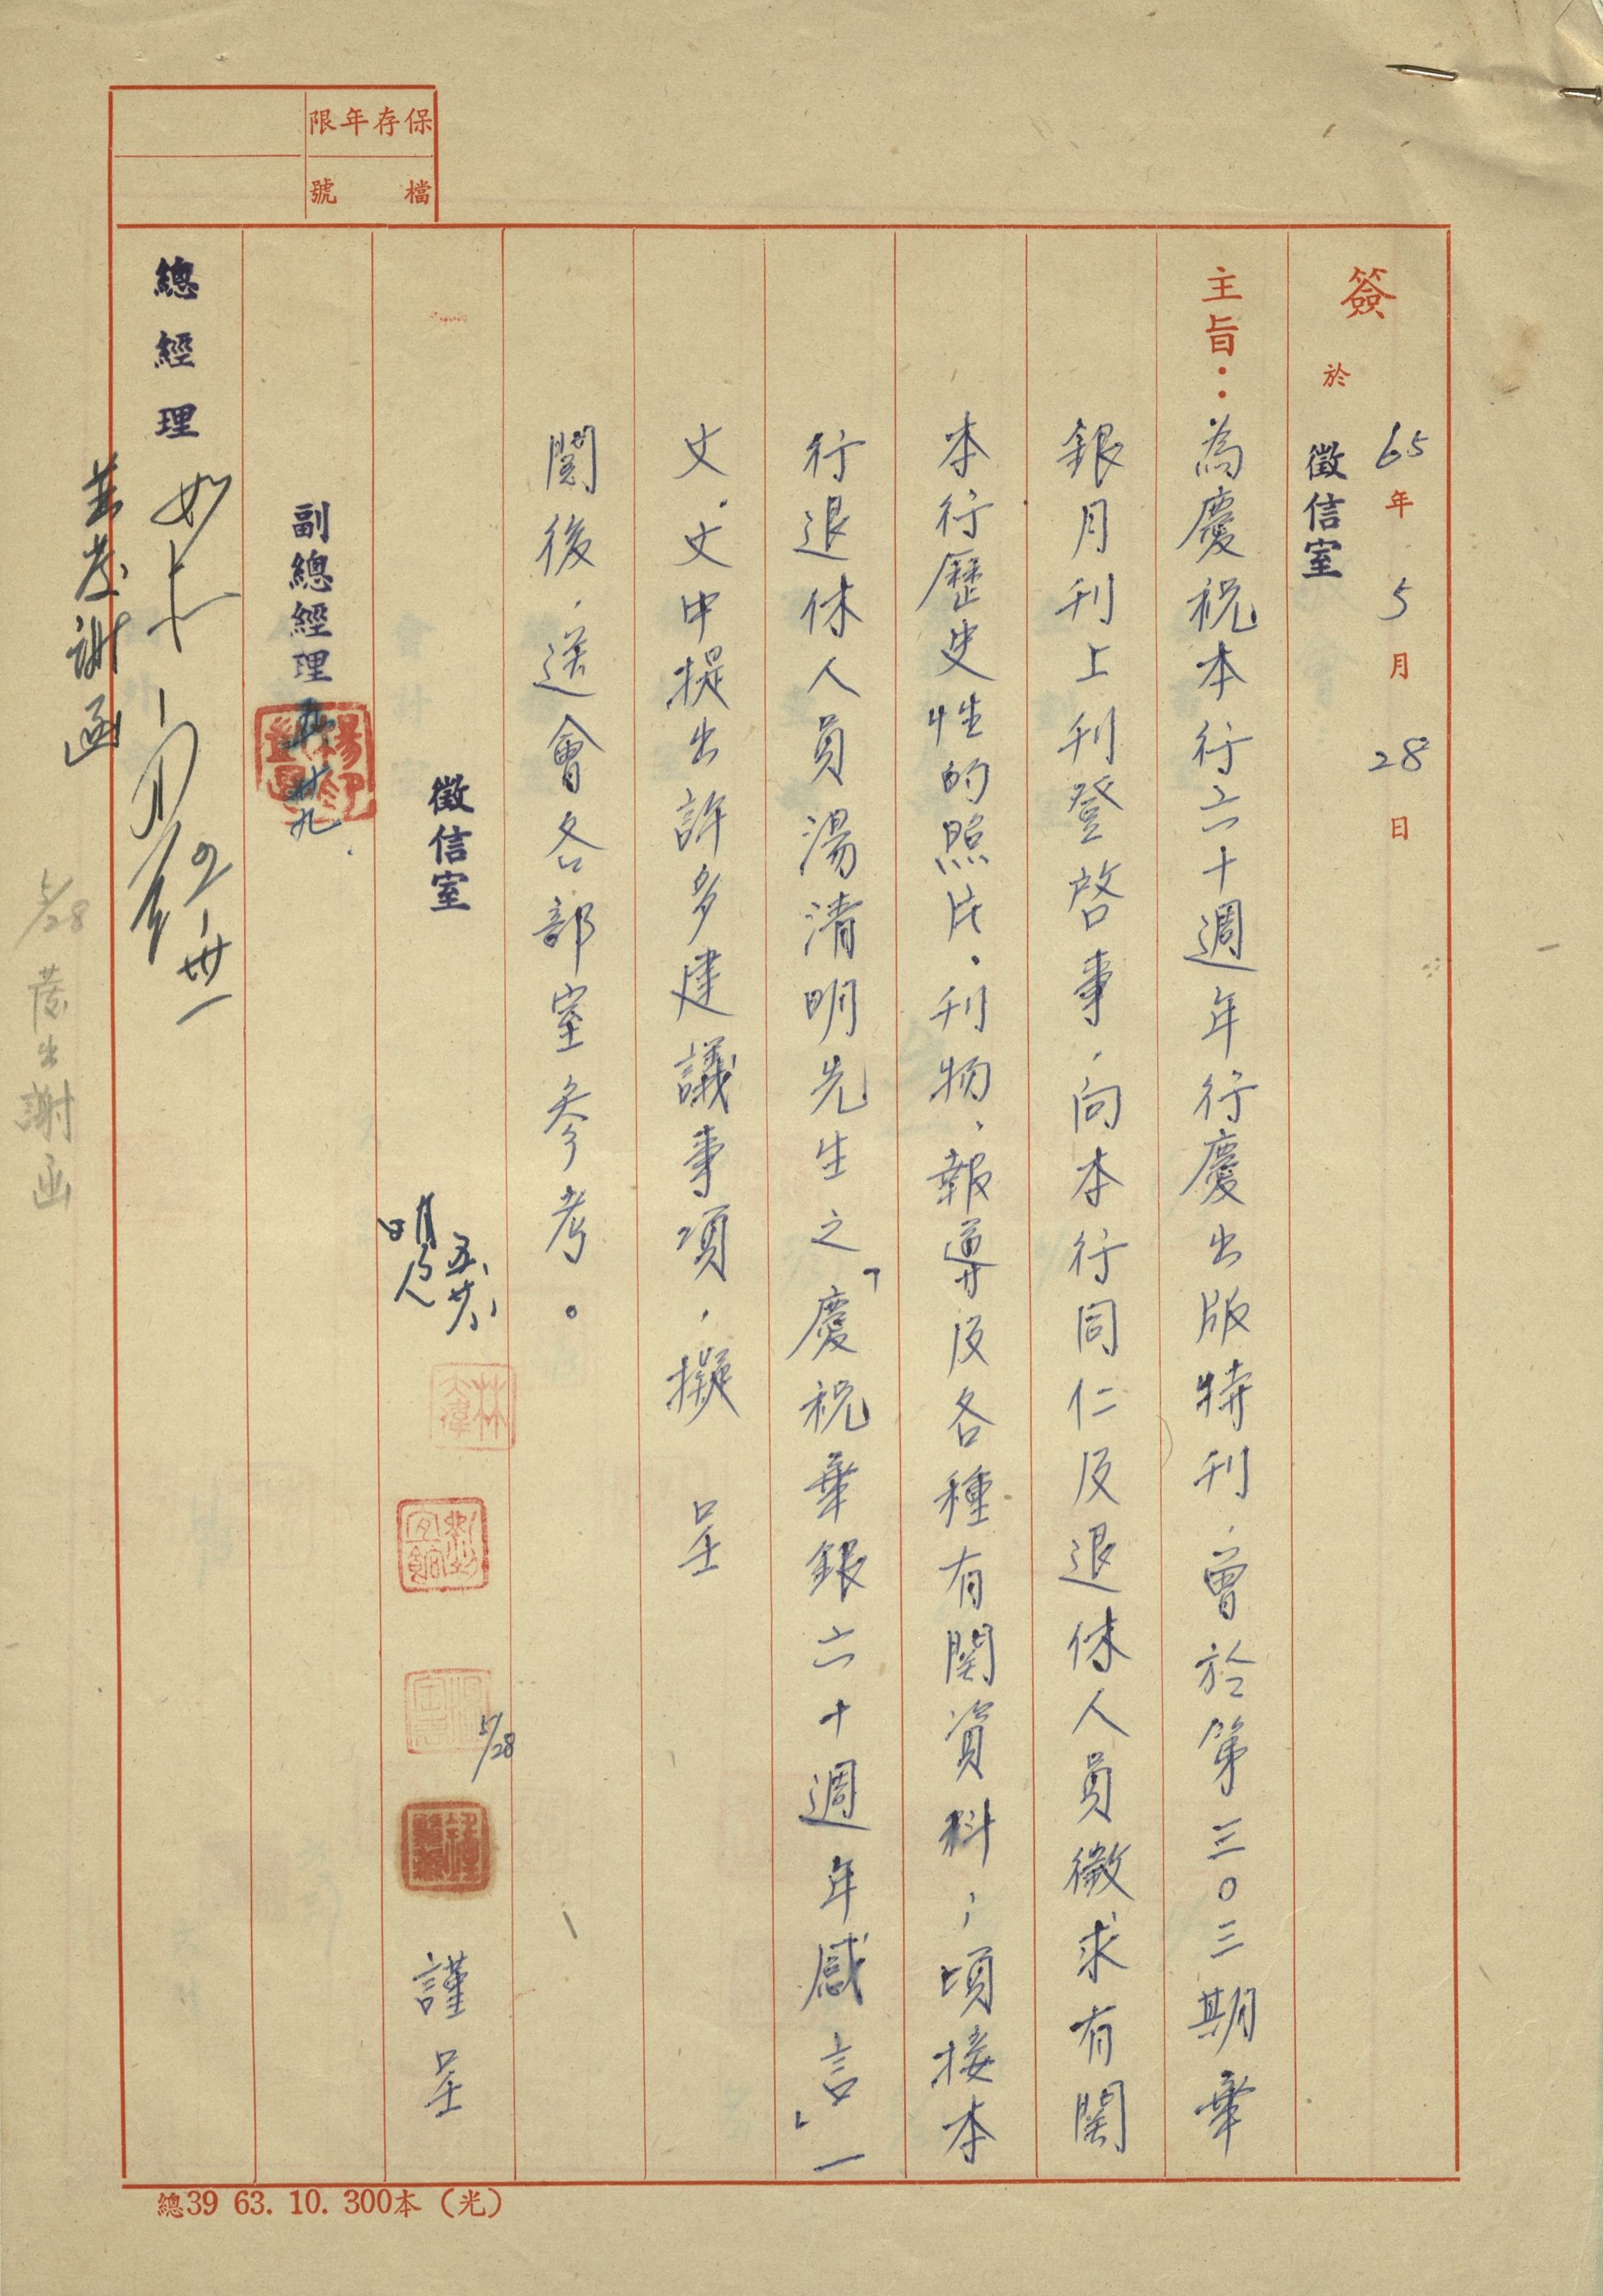 保存年限
檔號
簽 於
65年5月28日
徵信室
主旨：為慶祝本行六十週年行慶出版特刊，曾於第三〇三期華
銀月刊上刊登啓事，向本行同仁及退休人員徵求有関
本行歷史性的照片、刊物、報導及各種有関資料；頃接本
行退休人員湯清明先生之「慶祝華銀六十週年感言」一
文，文中提出許多建議事項，擬 呈
閱後，送會各部室參考。
徵信室
5/28
謹呈
副總經理
總經理
並發謝函
5/28 發出謝函
總39 63. 10. 300本（光）